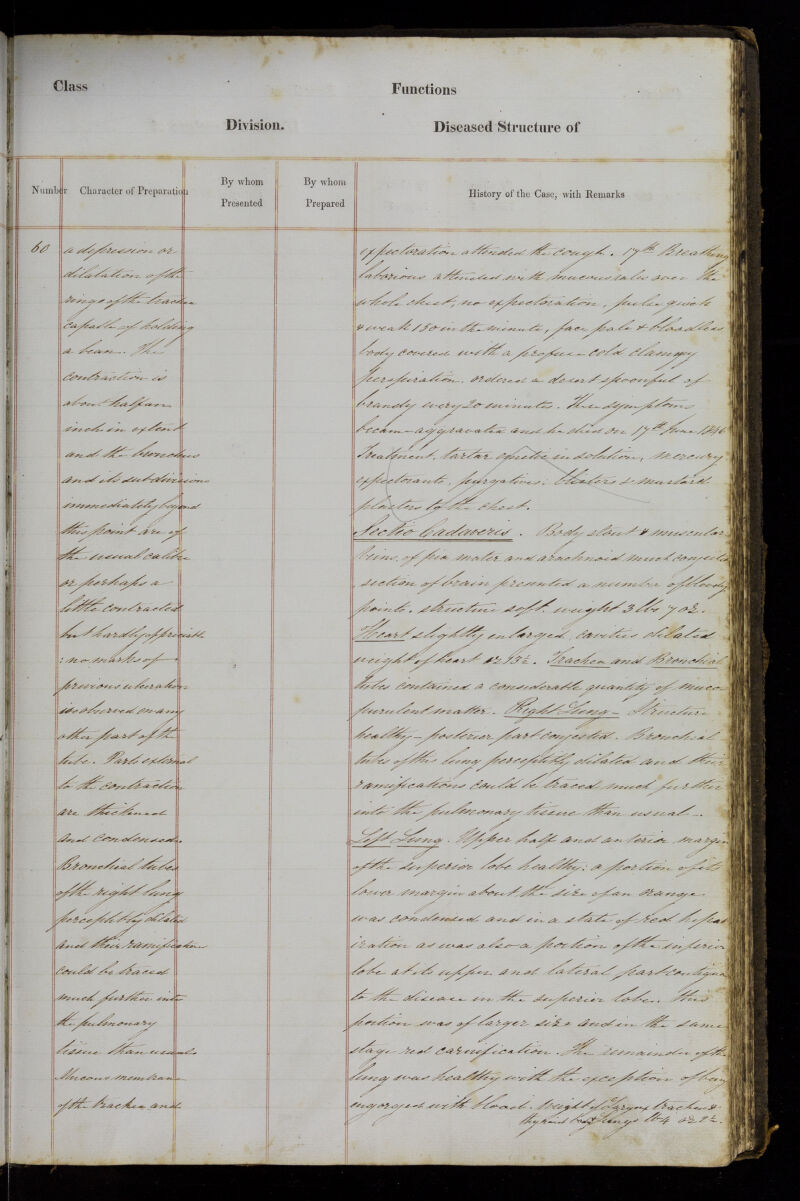 Class
Functions
Division.
Diseased Structure of
Number
Character of Preparation
By whom
Presented
By whom
Prepared
History of the Case, with Remarks
60
a depression or
dilatation of the
rings of the trachea
capable of holding
a bean. The
contraction is
about half an
inch in extent
and the bronchus
and its subdivisions
immediately beyond
this point are of
the usual calibre
or perhaps a
little contracted
but hardly appreciable
: no marks of
previous ulceration
is observed on any
other part of the
tube. Parts external
to the contraction
are thickened
and condensed.
Bronchial tubes
of the right lung
perceptibly dilated
and their ramifications
could be traced
much further into
the pulmonary
tissue than usual.
Mucous membrane
of the trachea and
expectoration attended the cough. 17th Breathing
laborious attended with mucous rales over the
whole chest, no expectoration, pulse quick
& weak 150 in the minute, face pale & bloodless
body covered with a profuse cold clammy
perspiration. ordered a desert spoonful of
brandy every 20 minutes. These symptoms
became aggravated and he died on 17th June 1846
Treatment. tartar emetic in solution, mercury
expectorants, purgatives, blisters & mustard
plasters to the chest.
Sectio Cadaveris. Body stout & muscular
Veins of pia mater and arachnoid much congested
section of brain presented a number of bloody
points. structure soft. weight 3 lbs 7 oz.
Heart slightly enlarged cavities dilated
weight of heart oz 13½. Trachea and Bronchial
tubes contained a considerable quantity of muco
purulent matter. Right Lung - Structure
healthy - posterior part congested. Bronchial
tubes of this lung perceptibly dilated and their
ramifications could be traced much further
into the pulmonary tissue than usual -
Left Lung. Upper half and anterior margin
of the superior lobe healthy: a portion of its
lower margin about the size of an orange
was condensed and in a state of red hepat
ization as was also a portion of the inferior
lobe at its upper and lateral part contiguous
to the disease in the superior lobe. This
portion was of larger size and in the same
stage red carnification. The remainder of the
lung was healthy with the exception of being
engorged with blood. Weight of Larynx trachea &
thyroid body lungs lb 4 oz 9½.